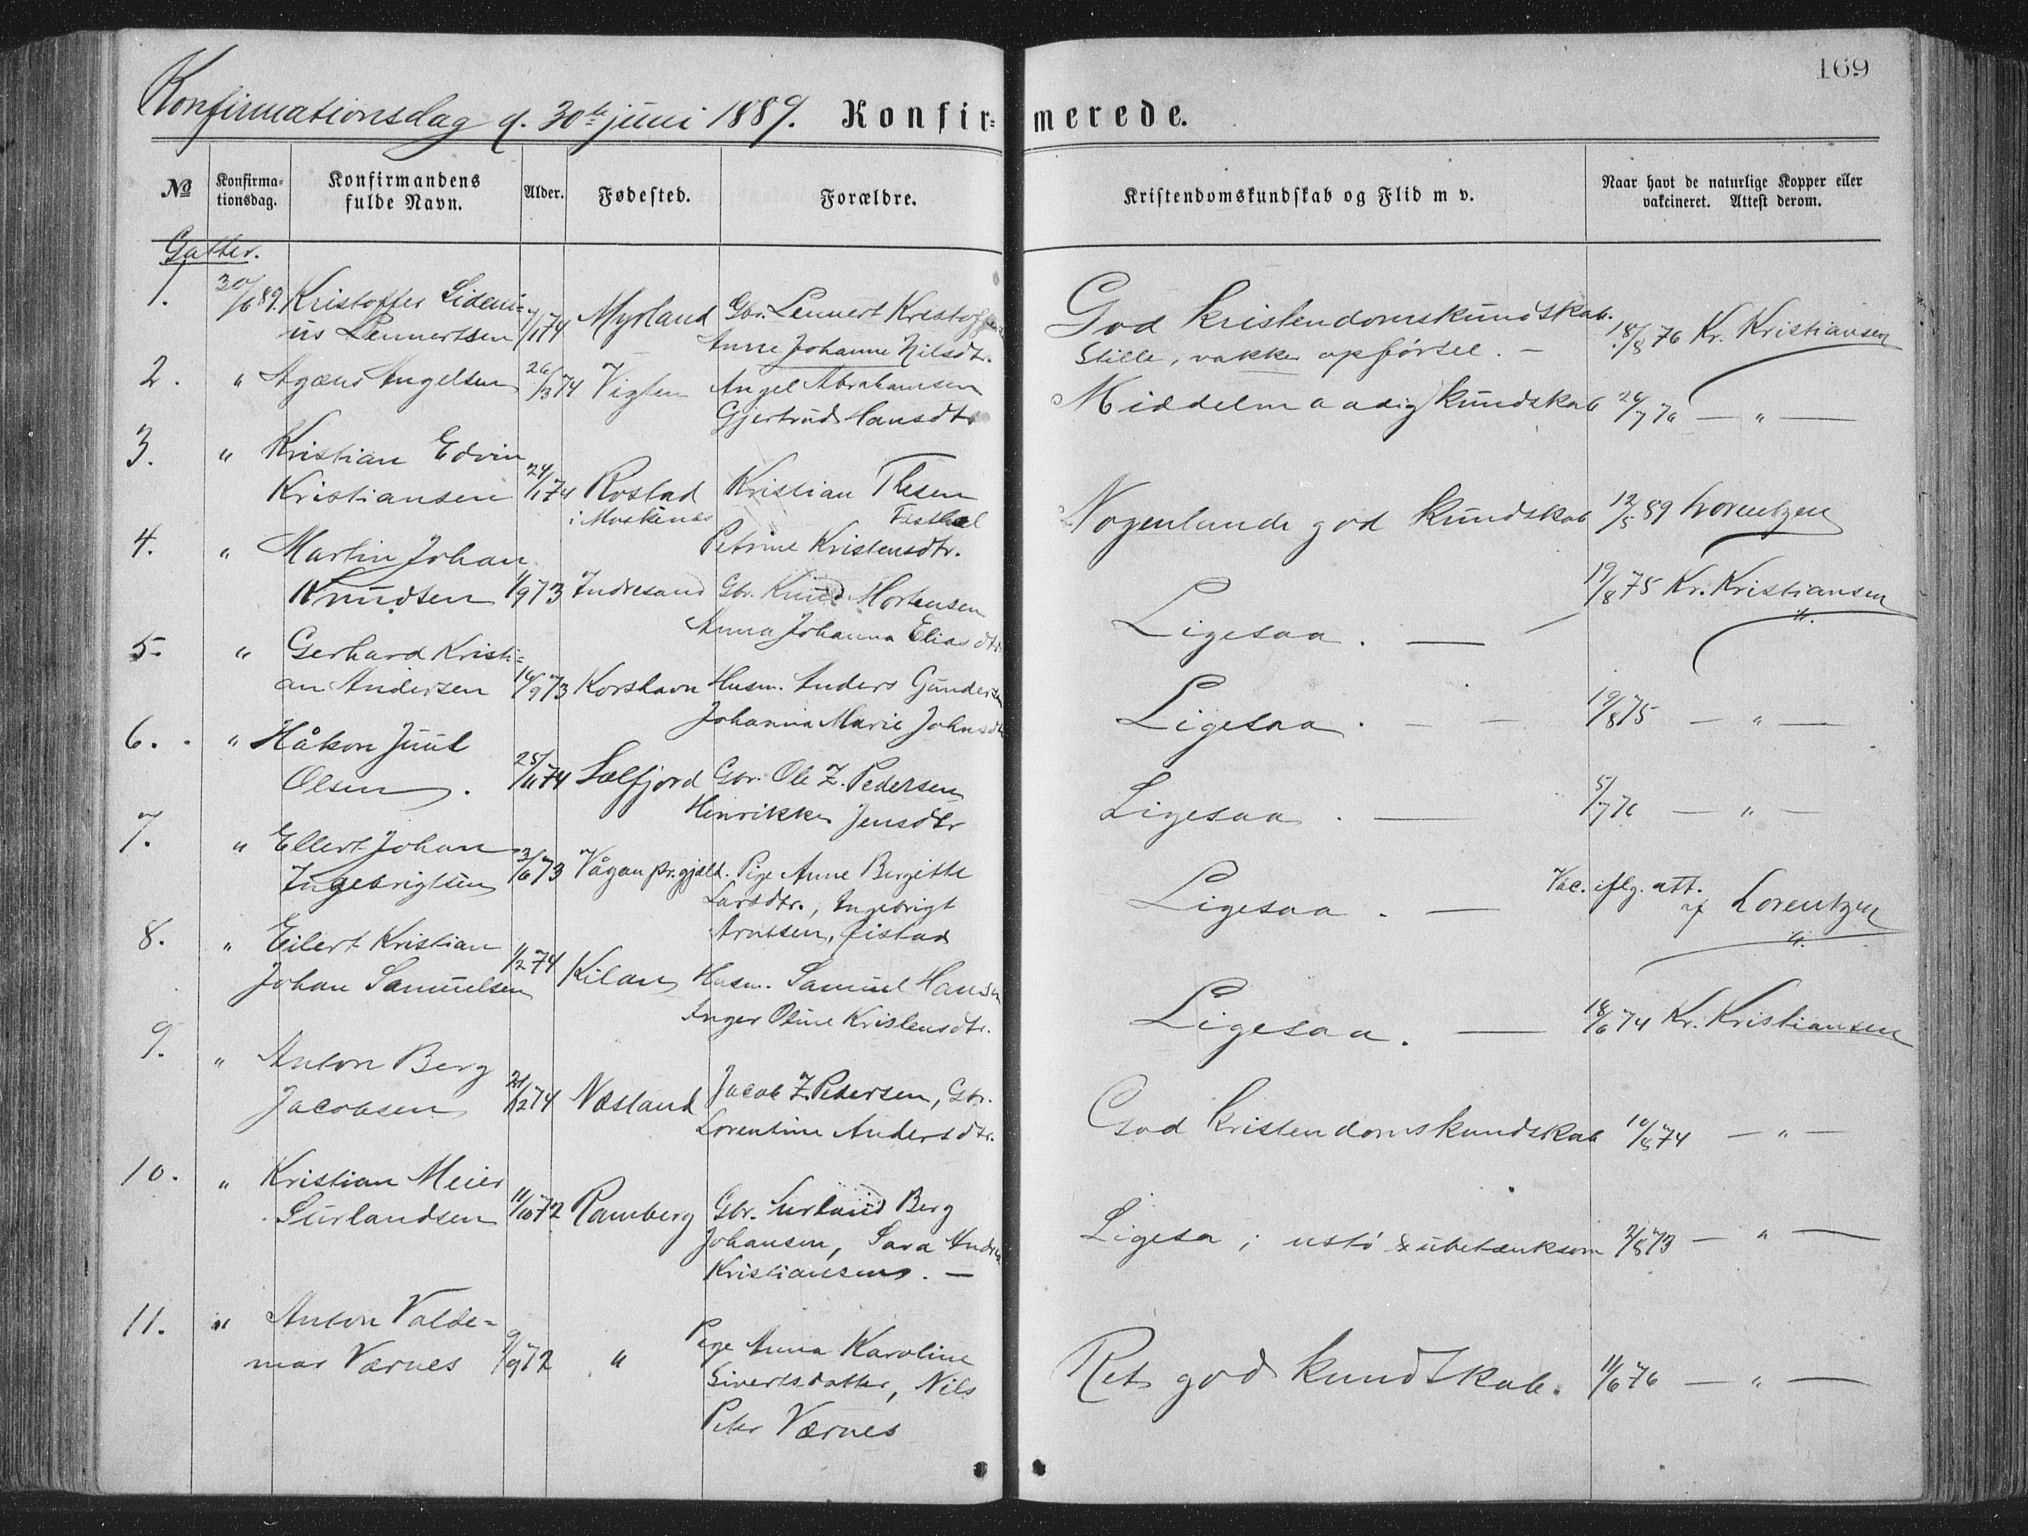 169
Konfirmationsdag d. 30te juni 1889. Konfir= merede.
No Konfirma=tionsdag. Konfirmandens fulde Navn. Alder. Fødested. Forældre. Kristendomskundskab og Flid m v. Naar havt de naturlige Kopper eller vakcineret. Attest derom.
Gutter.
1. 30/6 89. Kristoffer Sideni= 7/1 74 Myrland Gbr. Lennert Kristoffersen God kristendomskundskab. 18/8 76 Kr. Kristiansen
us Lennertsen Anne Johanne Nilsdtr. Stille, vakker opførsel. —
2. " Agæus Angelsen 26/3 74 Vigten Angel Abrahamsen Middelmaadig kundskab 24/7 76 — " —
Gjertrud Hansdtr
3. " Kristian Edvin
Kristiansen 24/1 74 Rostad Kristian Thesen Nogenlunde god kundskab 12/5 89 Lorentzen
i Moskenes
4. " Martin Johan Petrine Kristensdtr.
Knudsen 1/9 73 Indresand Gbr. Knud Mortensen Ligesaa. — 19/8 75 Kr. Kristiansen
Anna Johanna Eliasdtr
5. " Gerhard Kristi=
an Andersen 16/9 73 Korshavn Husm. Anders Gundersen Ligesaa. — — 19/8 75 — " —
Johanna Marie Johnsdtr
6. " Håkon Juul
Olsen. 25/11 74 Selfjord Gbr. Ole Z. Pedersen Ligesaa. — 5/7 76 — " —
Henrikke Jensdtr
7. " Ellert Johan
Ingebrigtsen 3/6 73 Vågan pr.gjæld. Pige Anne Bergitte Ligesaa. — Vac. iflg. att. af Lorentzen
Larsdtr., Ingebrigt
Arntsen,
8. " Eilert Kristian
Johan Samuelsen 1/2 74 Kilan Husm. Samuel Hansen Ligesaa. — 18/6 74 Kr. Kristiansen
Inger Oline Kristensdtr.
9. " Anton Berg
Jacobsen 21/12 74 Nesland Jacob Z. Pedersen, Gbr. God kristendomskundskab 10/8 74 — " —
Lorentine Andersdtr.
10. " Kristian Meier
Surlandsen 11/10 72 Ramberg Gbr. Surland Berg Ligesa; ustø & ubetænksom 2/8 73 — " —
Johansen, Sara Andrea
Kristiansens. —
11. " Anton Valde=
mar Værnes 9/9 72 " Pige Anna Karoline Ret god kundskab. 11/6 76 — " —
Sivertsdatter, Nils
Peter Værnes